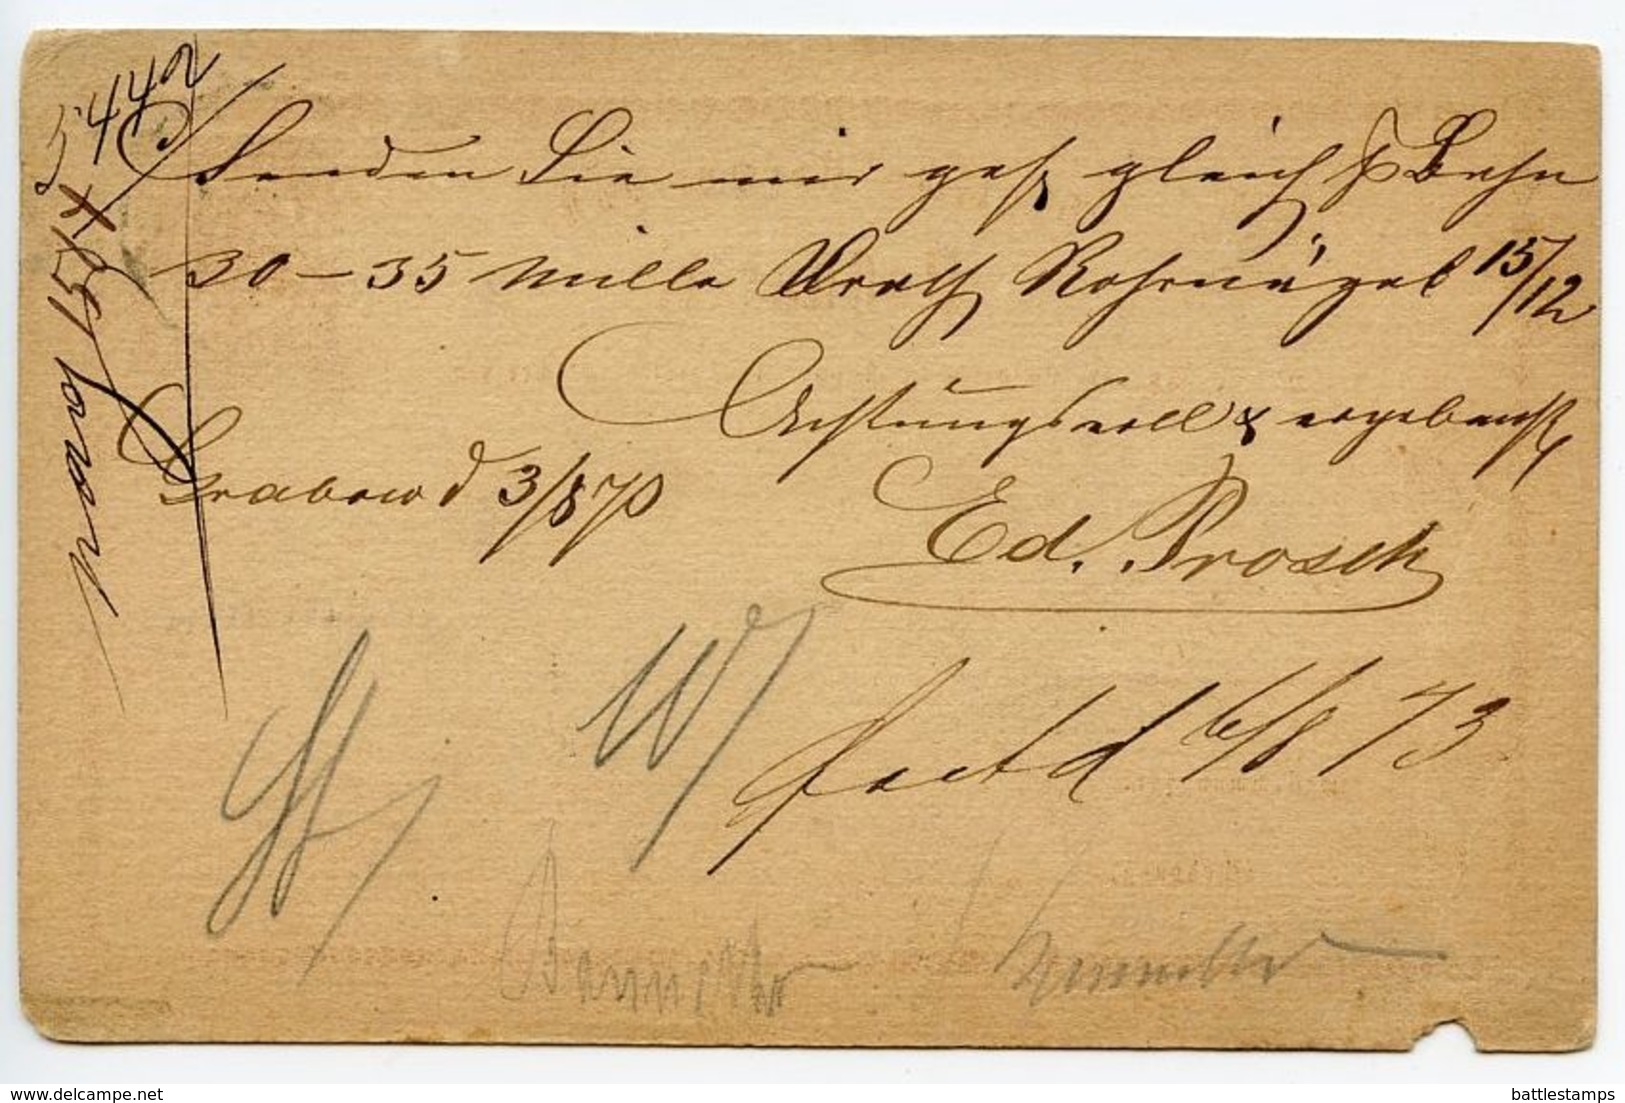 5442
Senden Sie mir gefl. gleich p Bahn
30 – 35 mille Drath Rohrnägel 15/12
Achtungsvoll & ergebenst
Grabow d 3/8 73
Ed. Prosch
fact d 6/8 73
battlestamps